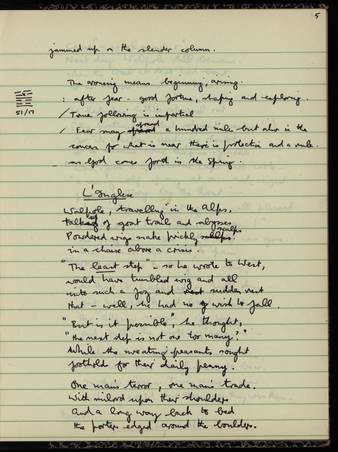 5
jammed up on the slender column.
The arousing means beginning, arising.
: after fear - good fortune, shaping and exploring.
51/17
/ True following is impartial
/ Fear may spread a hundred mile but also in the
concern for what is near there is protection and a rule
as God comes forth in the Spring.
L'Anglese
Walpole, travelling in the Alps,
talking of goat tracks and abysses
Powdered wigs make prickly scalps
in a chaise above a crisis.
"The least step" - so he wrote to West,
would have tumbled wig and all
into such a fog and
that - well, he had no wish to fall
"But is it possible", he thought,
"the next step is not one too many?"
While the sweating peasants sought
footholds for their daily penny.
One man's terror, one man's trade.
With milord upon their shoulders
And a long way back to bed
the porters edged around the boulders.